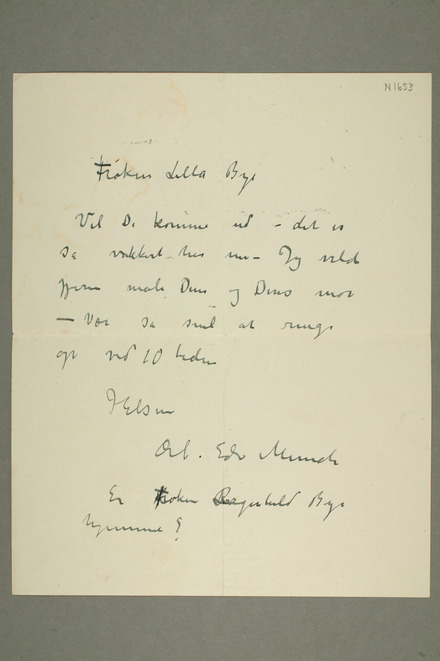 N1653
Frøken Lilla Bye
Vil De komme ud – det er
så vakkert her nu – Jeg vilde
gjerne male Dem og Deres mor
– Vær så snil at ringe
op ved 10 tiden
Hilsen
Erb. Edv Munch
Er Frøken Ragnhild Bye
hjemme?